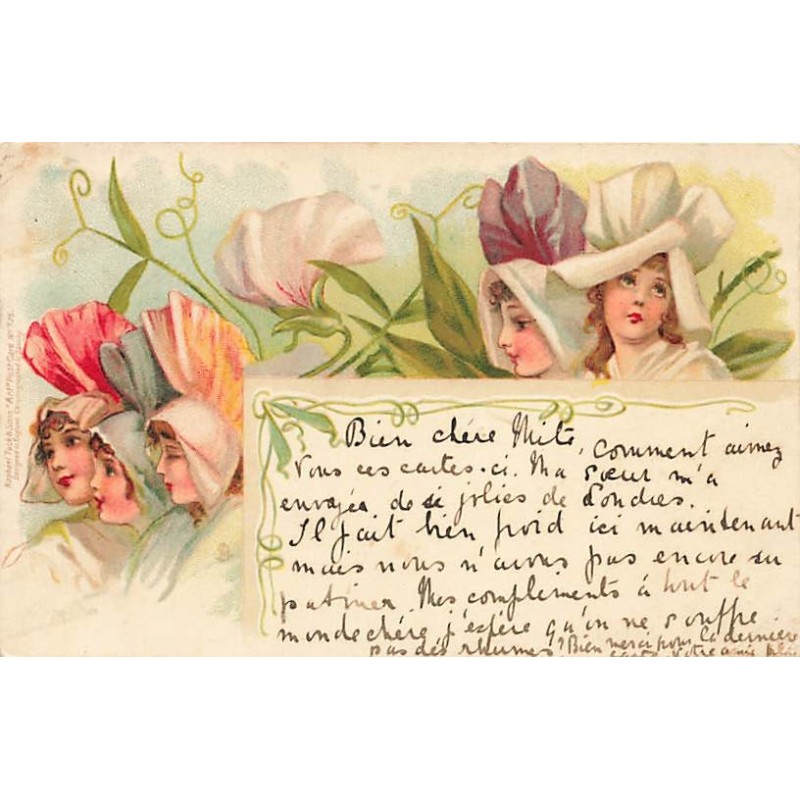 Raphael Tuck & Sons "Art" Post Card No
Designed in England
Bien chère Mite, comment aimez
vous ces cartes-ci. Ma sœur m'a
envoyée de si jolies de Londres.
Il fait bien froid ici maintenant
mais nous n'avons pas encore su
patiner. Mes compliments à tout le
monde chère, j'espère qu'on ne souffre
pas des rhumes? Bien merci pour la dernière
carte. Votre amie